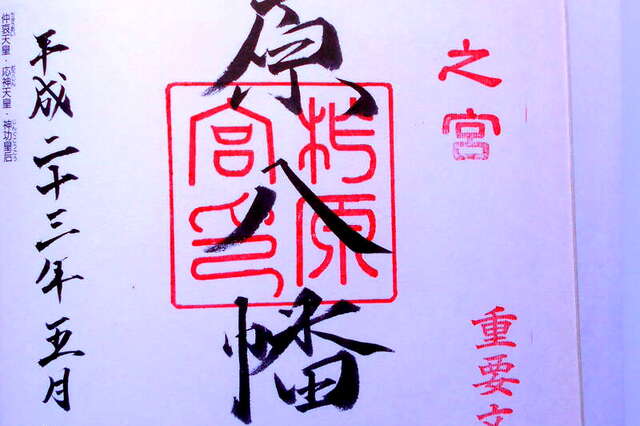 之宮
重要文
原八幡
柞原
宮印
平成二十三年五月
仲哀天皇・応神天皇・神功皇后